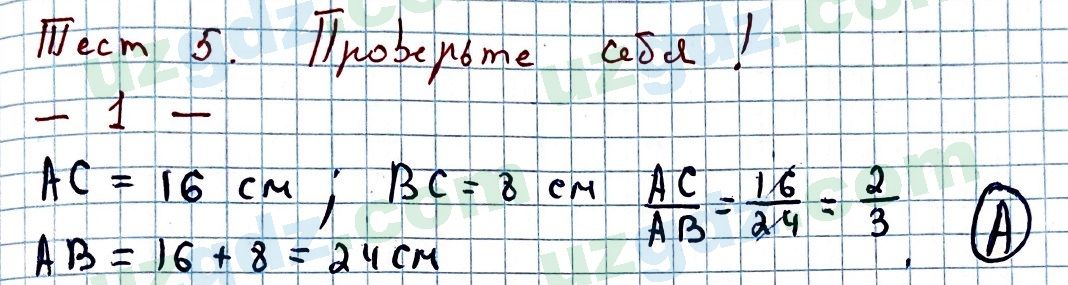 Тест 5. Проверьте себя!
— 1 —
AC = 16 см ; BC = 8 см AC/AB = 16/24 = 2/3 . (A)
AB = 16 + 8 = 24 см